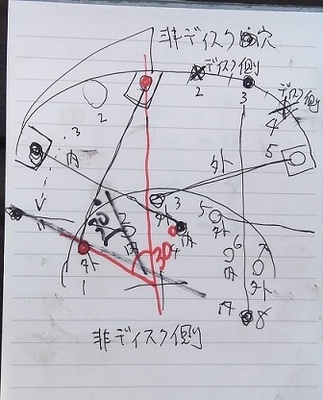 非ディスク側穴
ディスク側
2
3
ディスク側
4
2
3
内
外
5
1
30
2
内
外
3
30
4
内
5
外
6
内
7
外
外
1
内
8
非ディスク側